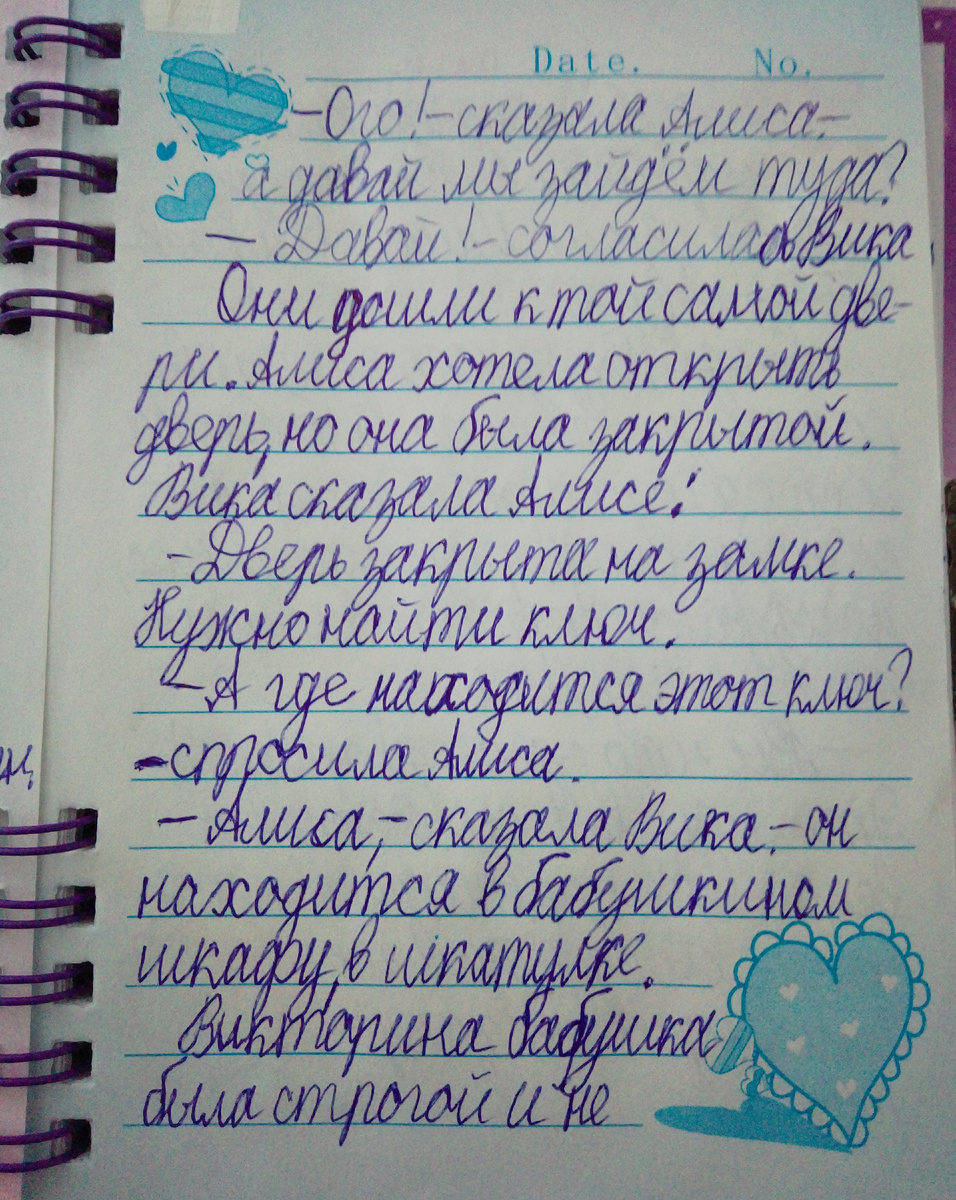 Date. No.
–Ого!–сказала Алиса–
а давай мы зайдём туда?
– Давай!–согласилась Вика.
Они дошли к той самой две-
ри. Алиса хотела открыть
дверь, но она была закрытой.
Вика сказала Алисе:
–Дверь закрыта на замке.
Нужно найти ключ.
–А где находится этот ключ?
–спросила Алиса.
–Алиса,–сказала Вика.–он
находится в бабушкином
шкафу, в шкатулке.
Викторина бабушка
была строгой и не